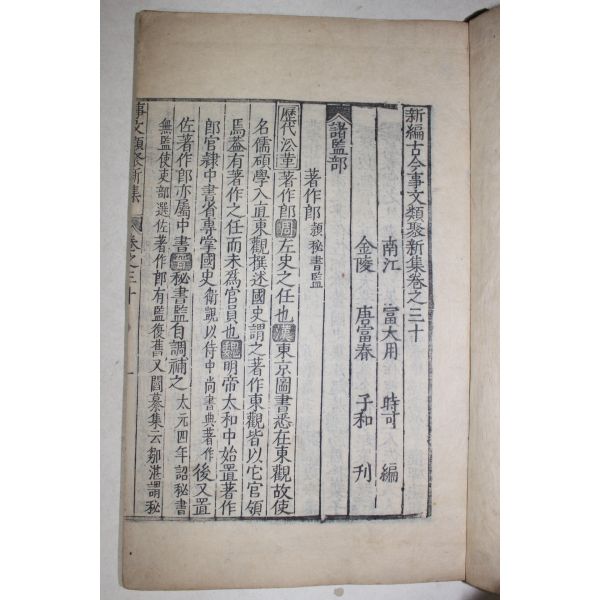 新編古今事文類聚新集卷之三十
南江 富大用 時可 編
金陵 唐富春 子和 刊
諸監部
著作郎 類秘書監
歷代沿革 著作郎 周 左史之任也 漢 東京圖書悉在東觀故使
名儒碩學入直東觀撰述國史謂之著作東觀皆以它官領
焉蓋有著作之任而未爲官員也 魏 明帝太和中始置著作
郎官隷中書省專掌國史 衛覬以侍中尚書典著作 後又置
佐著作郎亦屬中書 晉 秘書監自調補之 太元四年詔秘書
無監使吏部選佐著作郎有監復舊又閻纂集云鄒湛謂秘
事文類聚新集 卷之三十 一